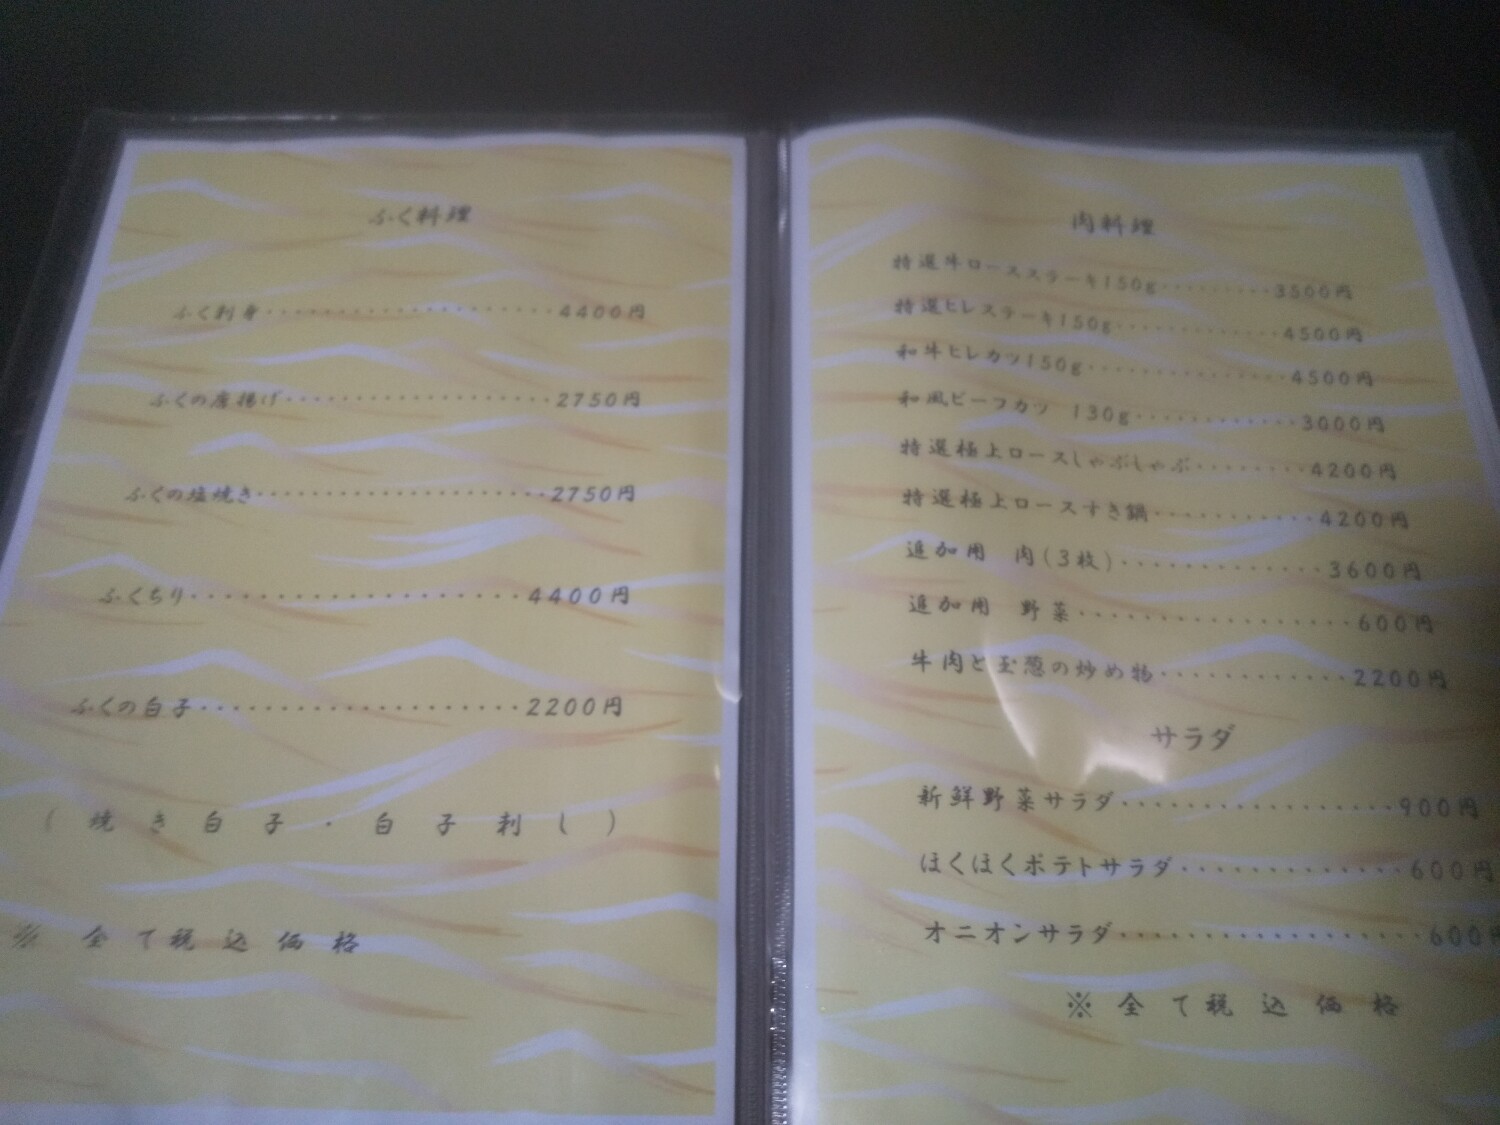 ふく料理
ふく刺身・・・・・・・・・・・・・・・・・・・・・4400円
ふくの唐揚げ・・・・・・・・・・・・・・・・・・・2750円
ふくの塩焼き・・・・・・・・・・・・・・・・・・・・2750円
ふくちり・・・・・・・・・・・・・・・・・・・・4400円
ふくの白子・・・・・・・・・・・・・・・・・・・2200円
(焼き白子・白子刺し)
※ 全て税込価格
肉料理
特選牛ロースステーキ150g・・・・・・・・・3500円
特選ヒレステーキ150g・・・・・・・・・・・・・4500円
和牛ヒレカツ150g・・・・・・・・・・・・・・・4500円
和風ビーフカツ 130g・・・・・・・・・・・・3000円
特選極上ロースしゃぶしゃぶ・・・・・・・・4200円
特選極上ロースすき鍋・・・・・・・・・・・4200円
追加用 肉(3枚)・・・・・・・・・・・・・3600円
追加用 野菜・・・・・・・・・・・・・・・・・600円
牛肉と玉葱の炒め物・・・・・・・・・・・・2200円
サラダ
新鮮野菜サラダ・・・・・・・・・・・・・・・・・900円
ほくほくポテトサラダ・・・・・・・・・・・・・・600円
オニオンサラダ・・・・・・・・・・・・・・・・・・600円
※ 全て税込価格